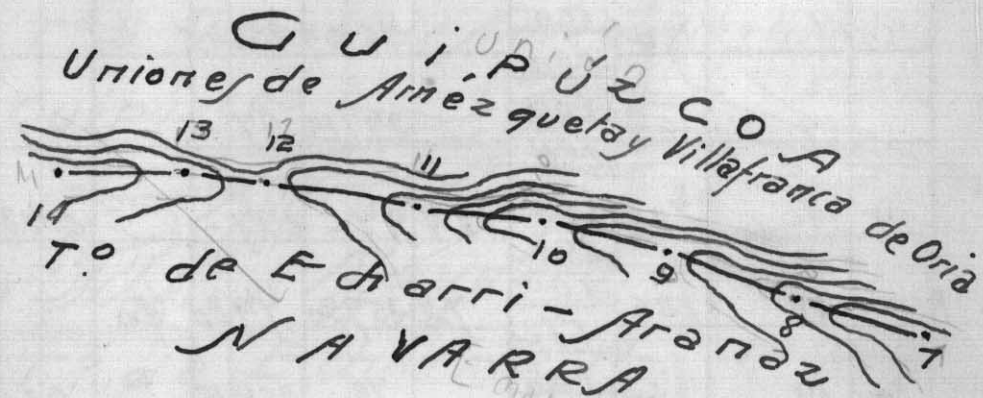 GUIPÚZCOA
Uniones de Amézqueta y Villafranca de Oria
13
12
11
14
10
9
8
7
T.º de Echarri-Aranaz
NAVARRA